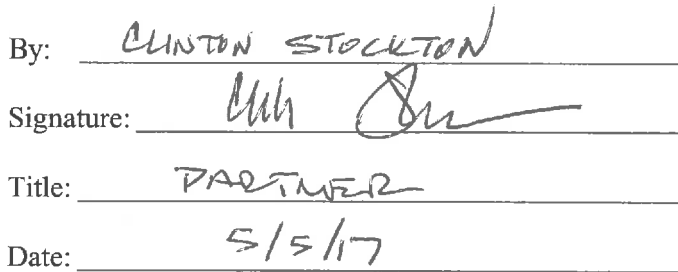 By: CLINTON STOCKTON
Signature:
Title: PARTNER
Date: 5/5/17